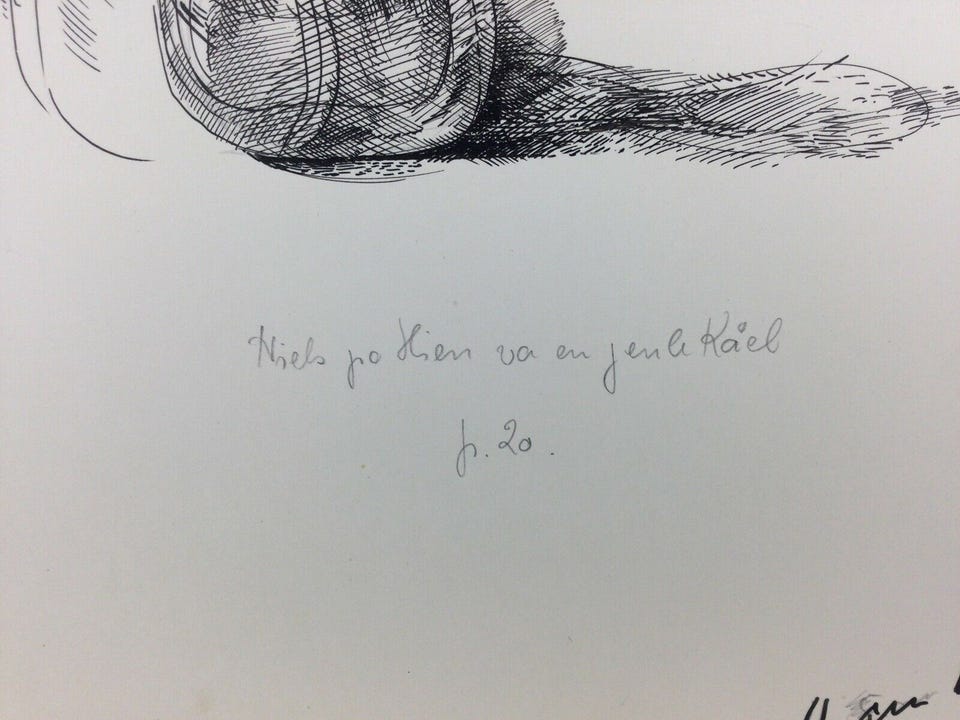 Niels po Hien va en jenle Kåel
p. 20.